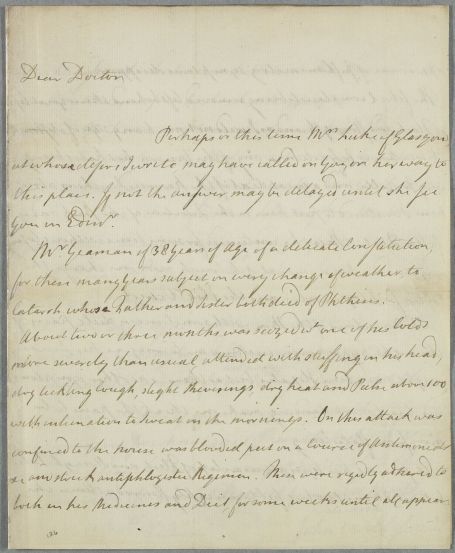 Dear Doctor
Perhaps or this time Mrs Luke of Glasgow
at whose desire I wrote to may have called on you on her way to
this place. If not the answer may be delayed until she see
you in Edinr.
Mr Yeaman of 38 Years of Age of a delicate Constitution
for these many Years subject on every change of weather to
Catarrh whose Father and sister both died of Phthisis.
About two or three months was seized wt one of his Colds
more severely than usual attended with stuffing in his head,
dry tickling Cough, slight shiverings, dry heat and Pulse above 100
with inclination to sweat in the mornings. On this attack was
confined to the house was blooded put on a Course of
strick antiphlogistic Regimen. These were rigidly adhered to
both in his Medicines and Diet for some weeks until all appear